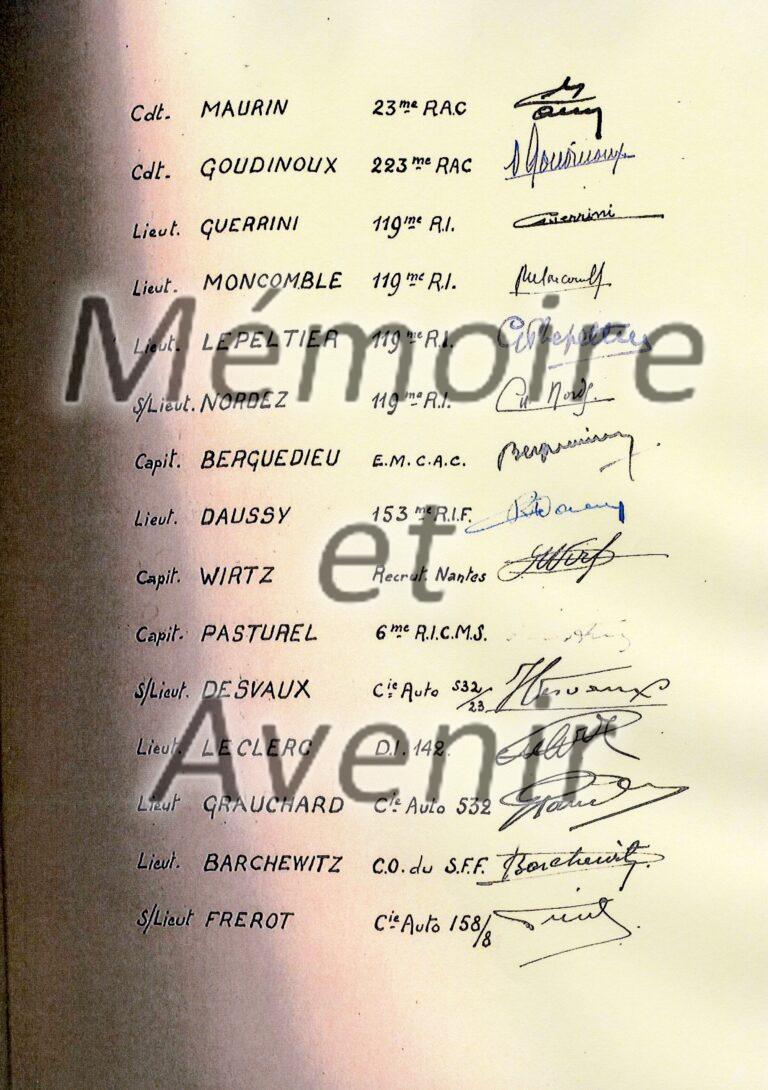 Cdt. MAURIN 23me RAC
Cdt. GOUDINOUX 223me RAC
Lieut. GUERRINI 119me R.I. Guerrini
Lieut. MONCOMBLE 119me R.I.
Lieut. LEPELTIER 119me R.I.
S/Lieut. NORDEZ 119me R.I.
Capit. BERGUEDIEU E.M.C.A.C.
Lieut. DAUSSY 153me R.I.F.
Capit. WIRTZ Recrut. Nantes
Capit. PASTUREL 6me R.I.C.M.S.
S/Lieut. DESVAUX Cie Auto 532/23
Lieut. LECLERC D.I. 142
Lieut GRAUCHARD Cie Auto 532
Lieut. BARCHEWITZ C.O. du S.F.F. Barchewitz
S/Lieut FREROT Cie Auto 158/8
Mémoire
et
Avenir